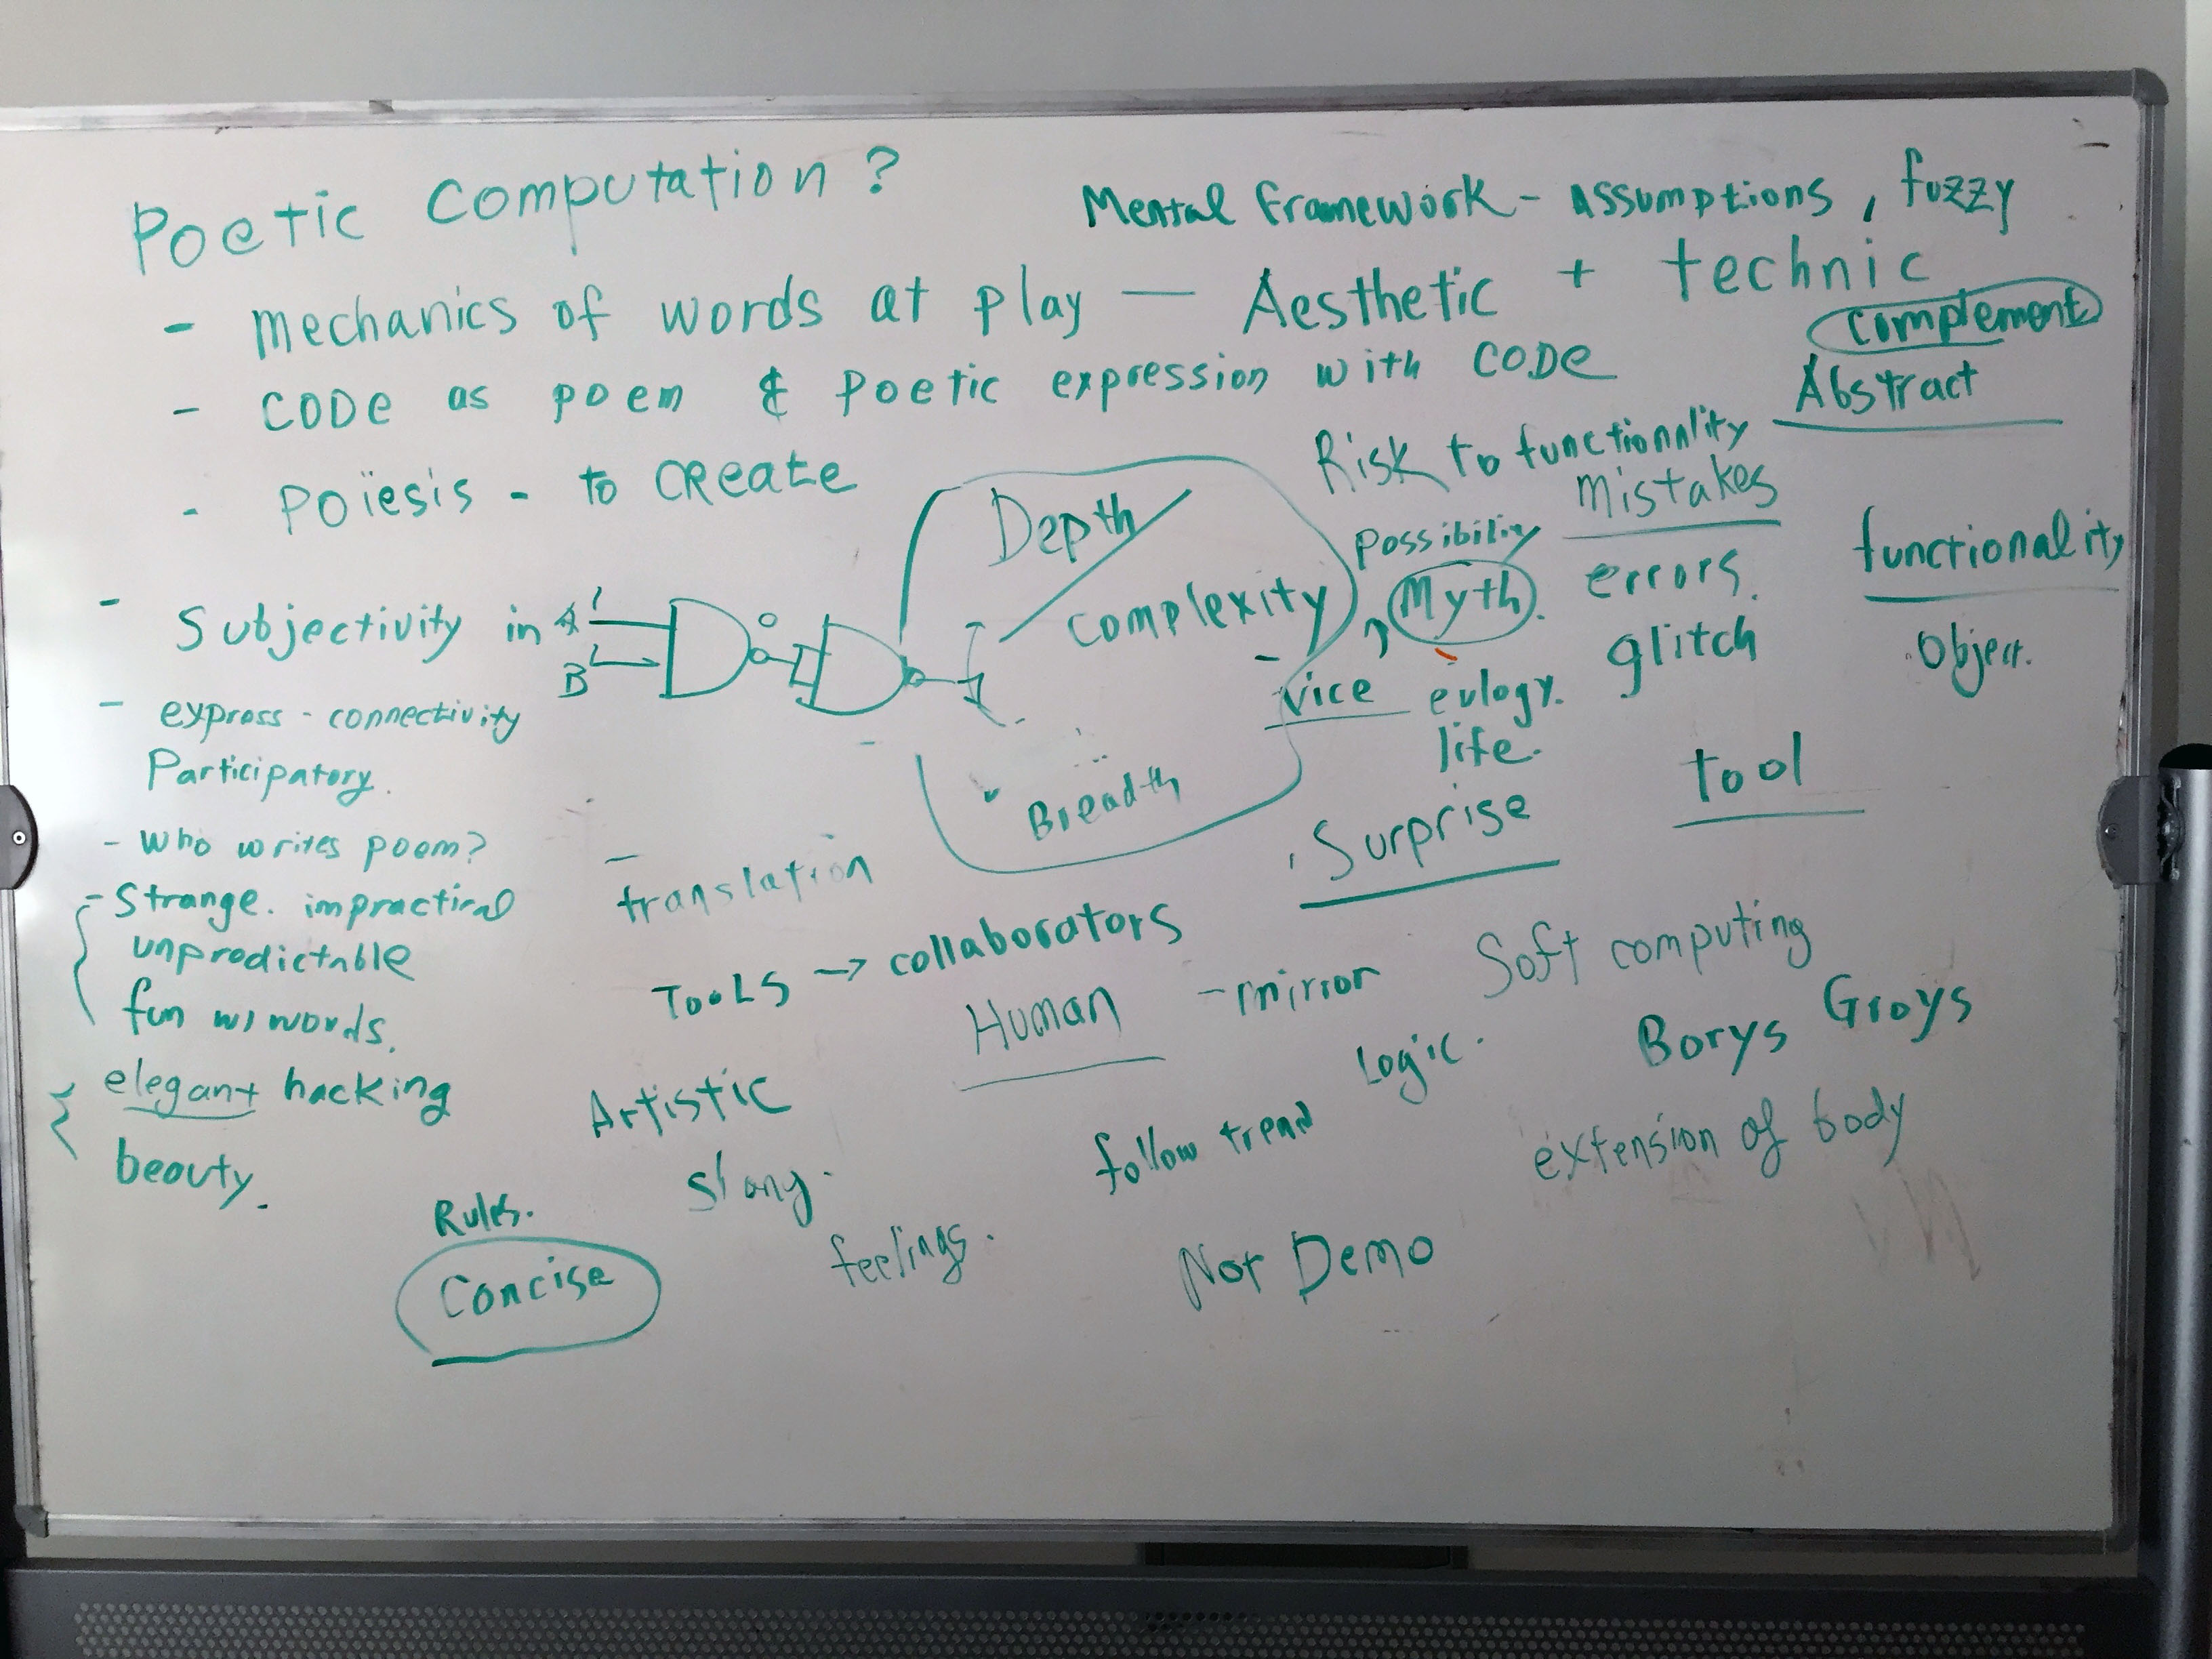 Poetic Computation ?
Mental Framework - Assumptions, fuzzy
- Mechanics of words at play — Aesthetic + technic
complement
- CODe as poem & Poetic expression with CODe
Abstract
- Poïesis - to CReate
Risk to functionality
Mistakes
Depth
possibility
functionality
- Subjectivity in A 1
B 1
0
Complexity
Myth.
errors.
glitch
Object.
- express - connectivity
Participatory.
- vice
eulogy.
life.
tool
Breadth
- Who writes poem?
- translation
Surprise
- Strange. impractical
unpredictable
fun w/ words.
TooLS → collaborators
Human
- mirror
Soft computing
Borys Groys
Logic.
elegant hacking
beauty.
Artistic
Slang.
follow trend
extension of body
Rules.
Concise
feelings.
Not Demo